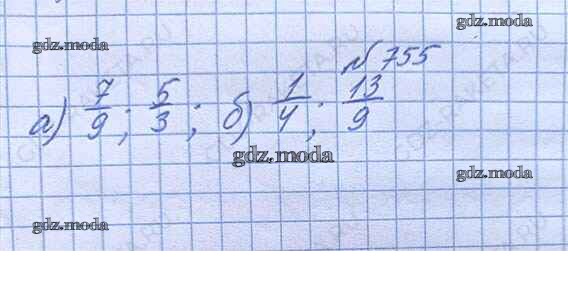 gdz.moda
№ 755
gdz.moda
а) 7/9; 5/3; б) 1/4; 13/9
gdz.moda
gdz.moda
gdz.moda